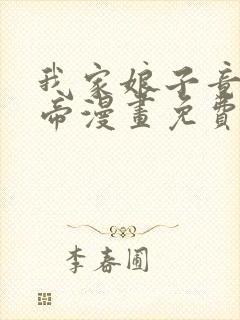 我家娘子竟
帝漫畫免費
李春圃